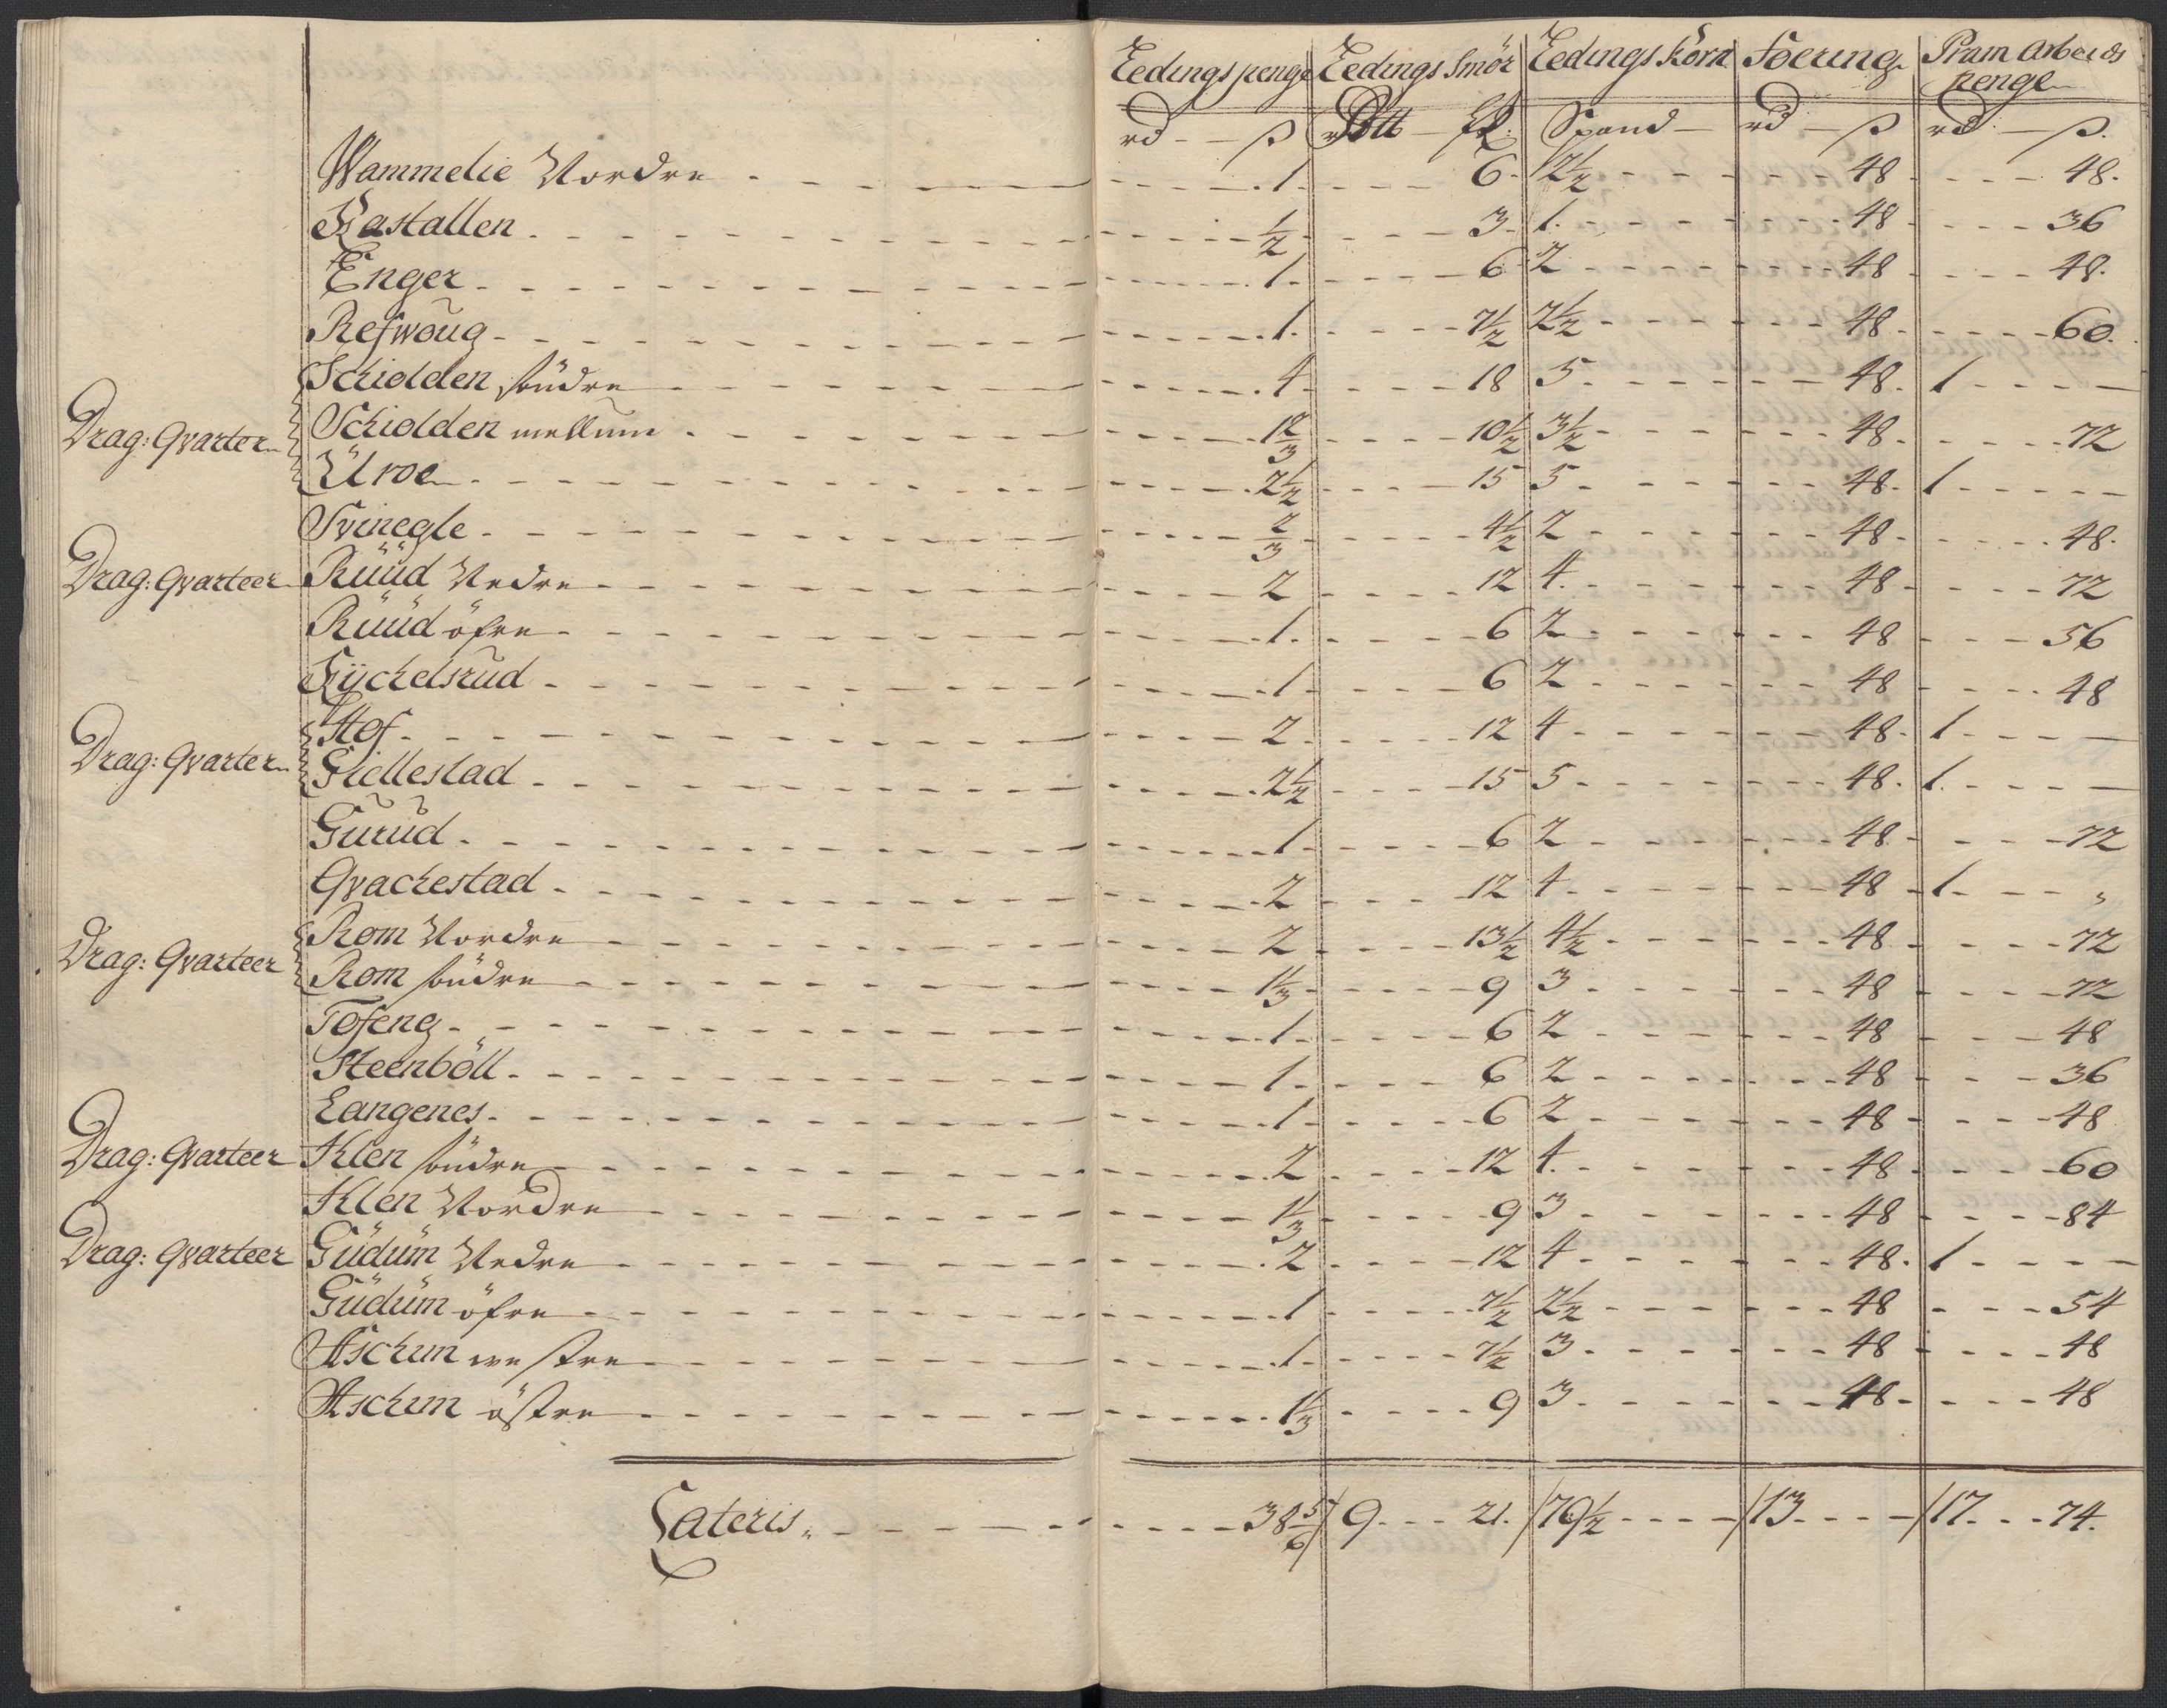 Leedings penge Leedings Smör Leedings Korn Foering Pram Arbeids penge
rd — ß Ptt — ℔ Spand — rd — ß rd — ß.
Wammelie Nordre 1. 6 2½ 48 48.
Kastallen ½ 3 1. 48 36
Enger 1. 6 2 48 48.
Refwoug 1. 7½ 2½ 48. 60.
Schiolden söndre 4 18 5 48. 1 —
Drag: Qvarter Schiolden mellum 1⅔ 10½ 3½ 48. 72
Uroe 2½ 15 5 48. 1
Svinegle ⅔ 4½ 2 48 48.
Drag: Qvarteer Ruud Nedre 2 12 4. 48 72
Ruud öfre 1. 6 2 48 56
Kyckelsrud 1 6 2 48 48
Hof 2 12 4 48. 1 —
Drag: Qvarter Fiellestad 2½ 15 5 48. 1. —
Gurud 1 6 2 48 72
Qvackestad 2 12 4. 48 1 "
Rom Nordre 2 13½ 4½ 48 72
Drag: Qvarteer Rom söndre 1⅓ 9 3 48 72
Tofeng 1 6 2 48 48
Steenböll 1 6 2 48 36
Langenes 1 6 2 48 48
Drag: Qvarteer Klen söndre 2 12 4. 48 60
Klen Nordre 1⅓ 9 3 48 84
Drag: Qvarteer Gudum Nedre 2 12 4 48. 1 —
Gudum öfre 1 7½ 2½ 48 54
Aschim westre 1 7½ 3 48 48
Aschim östre 1⅓ 9 3 48 48
Lateris 38 5/6 / 9 21. / 79½ / 13 / 17. 74.